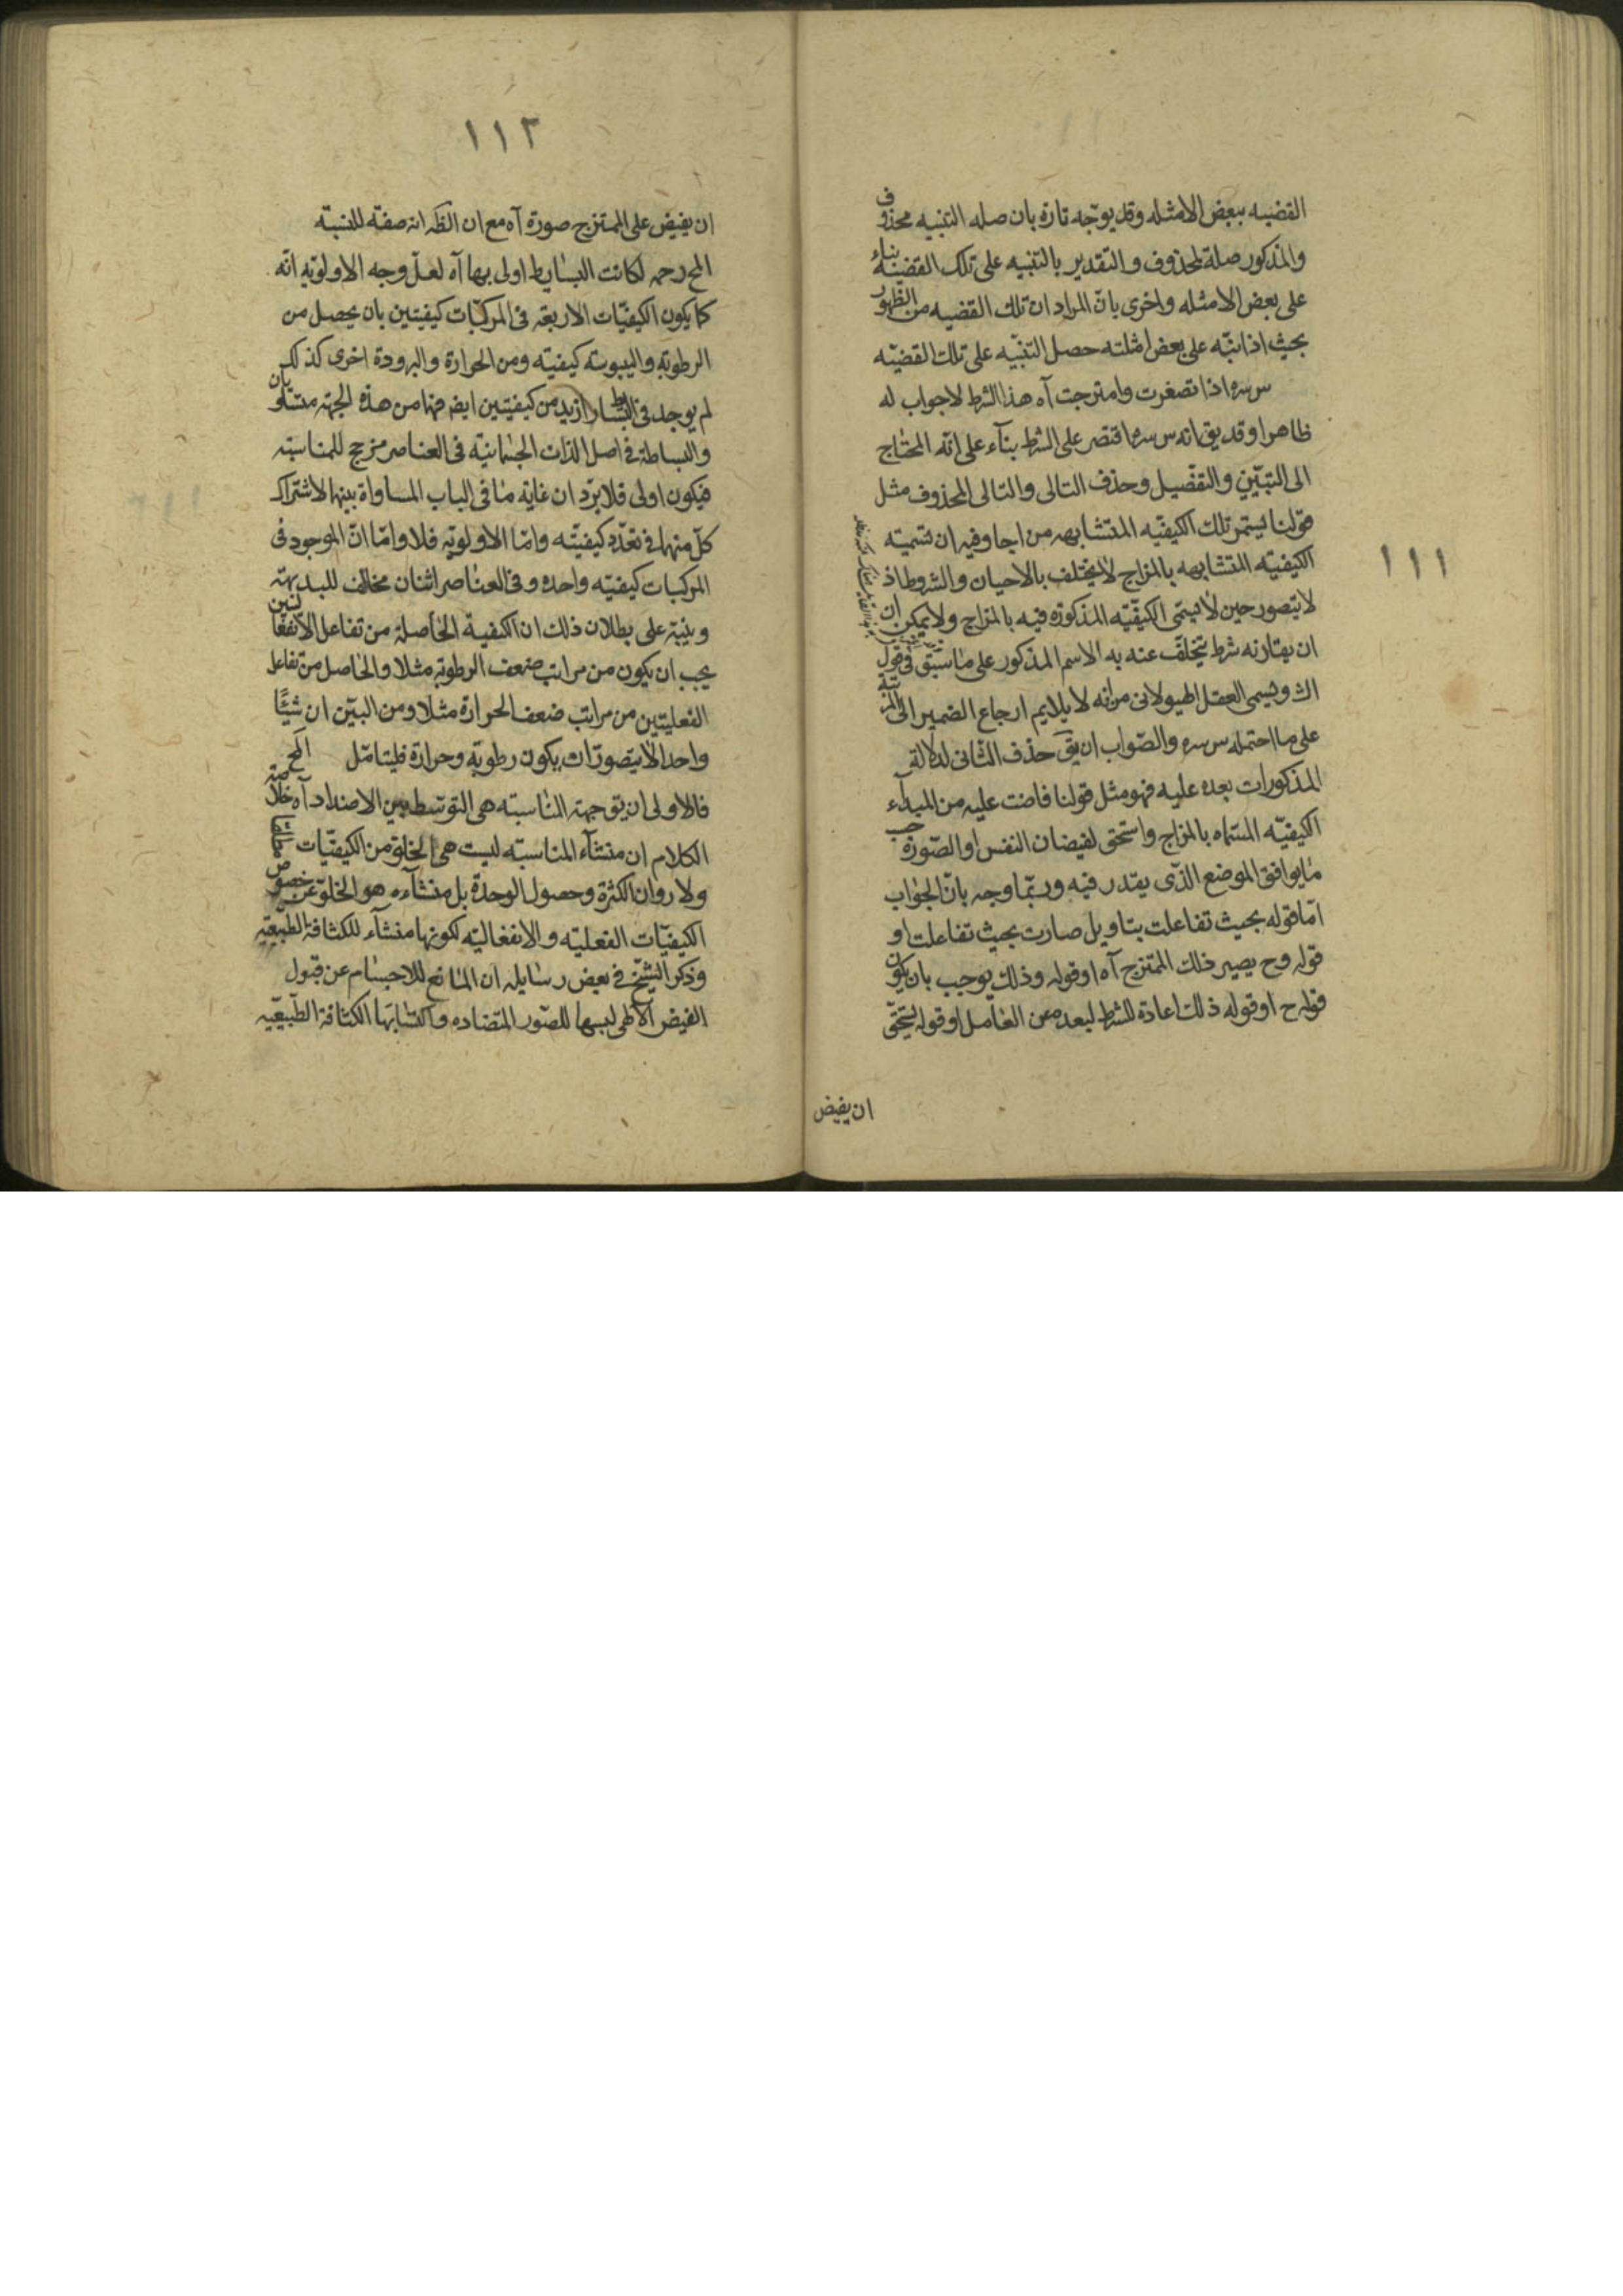 ١١١
القضيه ببعض الامثله وقد يوجّه تارة بان صله التنبيه محذوف
والمذكور صلة لمحذوف والتقدير بالتنبيه على تلك القضيّه بناء
على بعض الامثله واخرى بانّ المراد ان تلك القضيه من الظهور
بحيث اذا نبّه على بعض امثلته حصل التنبّيه على تلك القضيّه
س سره اذا تصغرت وامتزجت آه هذا الشرط لاجواب له
ظاهرا وقد يق انه س سره اقتصر على الشرط بنآء على انّه المحتاج
الى التبيّن والتفضيل وحذف التالى والتالى المحذوف مثل
قولنا يستمر تلك الكيفيّه المتشابهه من اجا وفيه ان تسميته
الكيفيّه المتشابهه بالمزاج لايختلف بالاحيان والشروط اذ
لايتصور حين لايسمّى الكيفيّه المذكوره فيه بالمزاج ولايمكن ان
ان يقارنه شرط يتخلّف عنه به الاسم المذكور على ما سبق فى قول
الش ويسمى العقل الهيولانى من انه لا يلايم ارجاع الضمير الى المرتبة
على ما احتمله س سره والصّواب ان يق حذف الثّانى لدلالة
المذكورات بعده عليه فهو مثل قولنا فاضت عليه من المبدآء
الكيفيّه المسّماه بالمزاج واستحق لفيضان النفس او الصّورة حب
مايوافق الموضع الذّى يقدر فيه وربّما وجه بانّ الجواب
امّا قوله بحيث تفاعلت بتاويل صارت بحيث تفاعلت او
قوله وح يصير ذلك الممتزج آه او قوله وذلك يوجب بان يكون
قوله ح او قوله ذلك اعادة للشرط لبعده عن العامل او قوله يستحّق
ان يفيض
١١٢
ان يفيض على الممتزج صورة آه مع ان الظّه انه صفته للنسبّة
المح رحمه لكانت البسايط اولى بها آه لعلّ وجه الاولويّه انّه
كما يكون الكيفيّات الاربعه فى المركبّات كيفيتين بان يحصل من
الرطوبة واليبوسته كيفيّته ومن الحرارة والبرودة اخرى كذلك
لم يوجد فى البسايط ازيد من كيفيّتين ايض فهما من هذه الجهته متساويان
والبساطة فى اصل الذات الجسمانيّه فى العناصر مزجح للمناسبته
فيكون اولى فلا يرّد ان غاية ما فى الباب المساواة بينهما لاشتراك
كلّ منهما فى تعدّد كيفيّته وامّا الاولويّه فلا وامّا انّ الموجود فى
المركبات كيفيّه واحده وفى العناصر اثنان مخالف للبديهته
وينبّه على بطلان ذلك ان الكيفية الحاصلة من تفاعل الانفعاليتين
يجب ان يكون من مراتب ضعف الرطوبة مثلا والحاصل من تفاعل
الفعليتين من مراتب ضعف الحرارة مثلا ومن البيّن ان شيئًا
واحدا لايتصور ان يكون رطوبة وحرارة فليتامّل المح
فالاولى ان يق جهته المناسبته هى التوسّط بين الاضداد آه خلاصته
الكلام ان منشآء المناسبته ليست هى الخلّو من الكيفيّات
ولا روان الكثرة وحصول الوحدة بل منشآءه هو الخلّو عن خصوص
الكيفيّات الفعليّه والانفعاليّه لكونها منشآء للكثافة الطبيّعيّه
وذكر الشيّخ فى بعض رسايله ان المانع للاجسام عن قبول
الفيض الالهى لبسها للصّور المتضاده واكتسابها الكثافة الطبيّعيّه